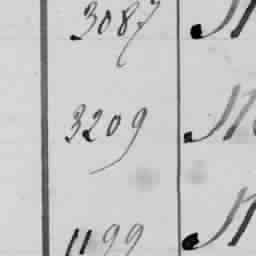 3087
3209
1199